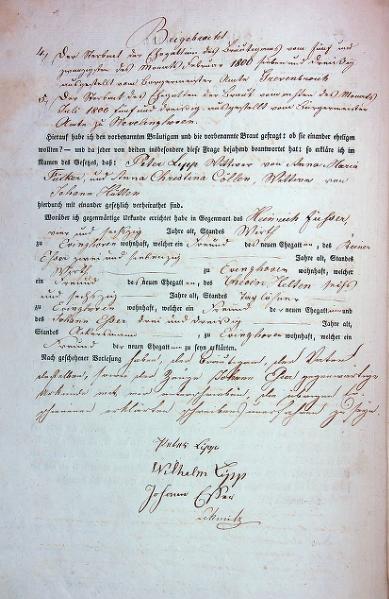 Beigebracht
4, Der Sterbact der Ehegattin des Bräutigams vom fünf und
zwanzigsten des Monats Februar 1806 sieben und dreißig
ausgestellt vom Bürgermeister Amte Grevenbroich
5, Der Sterbact des Ehegatten der Braut vom ersten des Monats
Juli 1806 fünf und dreißig, ausgestellt vom Bürgermeister
Amte zu Hemmerden
Hierauf habe ich den vorbenannten Bräutigam und die vorbenannte Braut gefragt: ob sie einander ehelichen
wollen? — und da jeder von beiden insbesondere diese Frage bejahend beantwortet hat: so erkläre ich im
Namen des Gesetzes, daß: Peter Lipp Wittwer von Anna Maria
und Anna Christina Cöllen, Wittwe von
Johann
hierdurch mit einander gesetzlich verheirathet sind.
Worüber ich gegenwärtige Urkunde errichtet habe in Gegenwart des Heinrich
vier und sechszig Jahre alt, Standes Wirth
zu Evinghoven wohnhaft, welcher ein Freund des neuen Ehegatten, des Reiner
Esser zwei und siebenzig Jahre alt, Standes
Wirth zu Evinghoven wohnhaft, welcher
ein Freund des neuen Ehegatten, des Theodor sechs
und sechszig Jahre alt, Standes Taglöhner
zu Evinghoven wohnhaft, welcher ein Freund der neuen Ehegatten und
des Johann Esser drei und dreißig Jahre alt,
Standes Ackersmann, zu Evinghoven wohnhaft, welcher ein
Freund der neuen Ehegatten zu seyn erklärten.
Nach geschehener Vorlesung haben, der Bräutigam, der Vater
desselben, sowie der Zeuge Johann Esser gegenwärtige
Urkunde mit mir unterschrieben, die übrigen
erklärten schreibens unerfahren zu seyn.
Peter Lipp
Wilhelm Lipp
Johann Esser